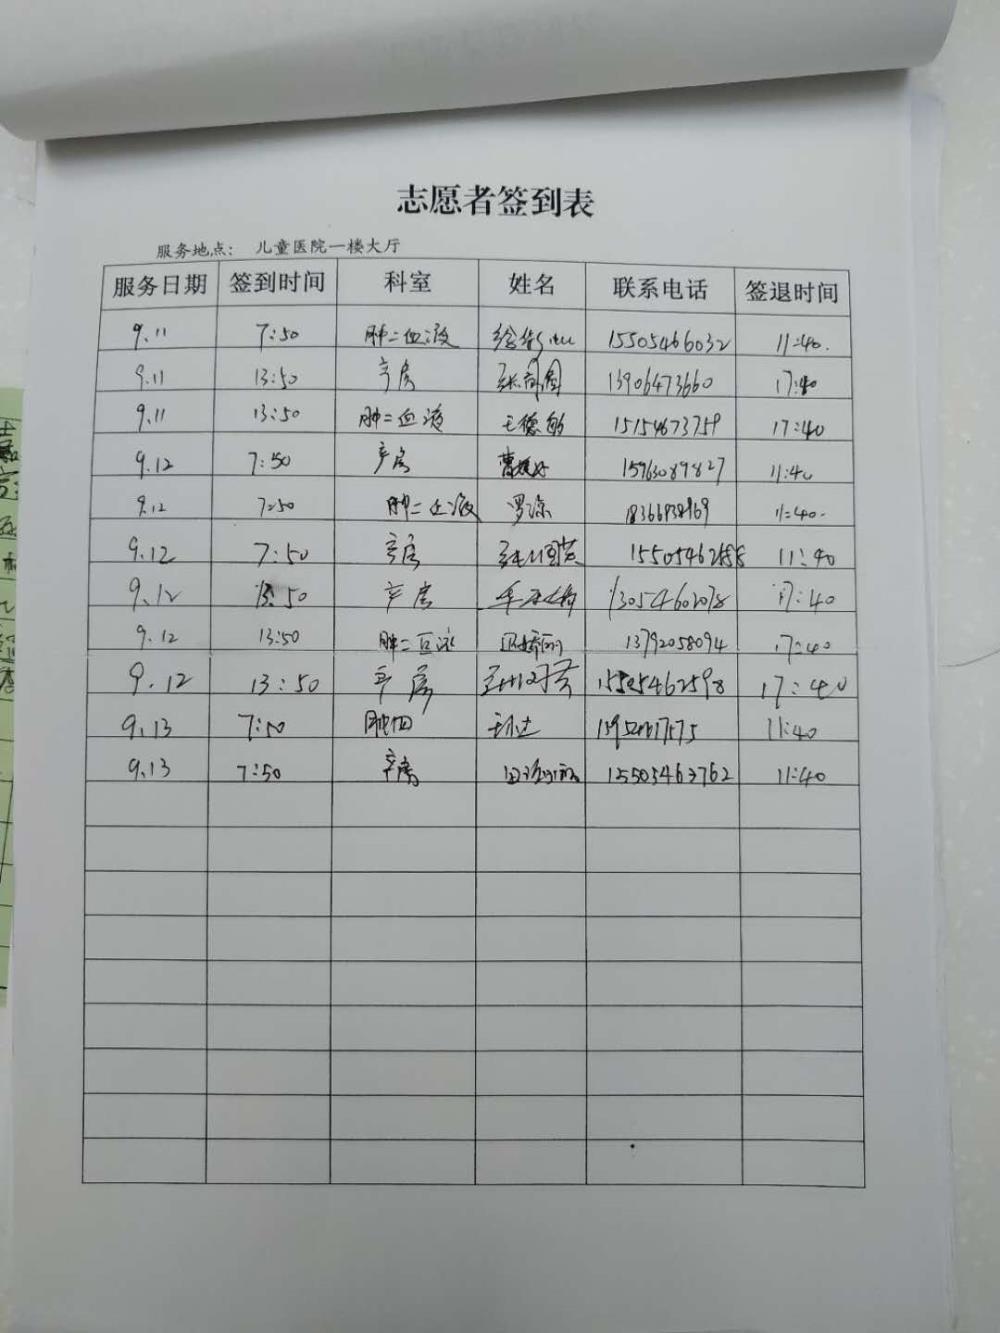 志愿者签到表
服务地点: 儿童医院一楼大厅
服务日期 签到时间 科室 姓名 联系电话 签退时间
9.11 7:50 肿二血液 15505466032 11:40.
9.11 13:50 产房 13906473660 17:40
9.11 13:50 肿二血液 王德敏 15154673759 17:40
9.12 7:50 产房 15963089827 11:40
9.12 7:50 肿二血液 罗凉 11:40.
9.12 7:50 产房 11:40
9.12 13:50 产房 17:40
9.12 13:50 肿二血液 13792058094 17:40
9.12 13:50 产房 15505462598 17:40
9.13 7:50 肿四 11:40
9.13 7:50 产房 15503463762 11:40